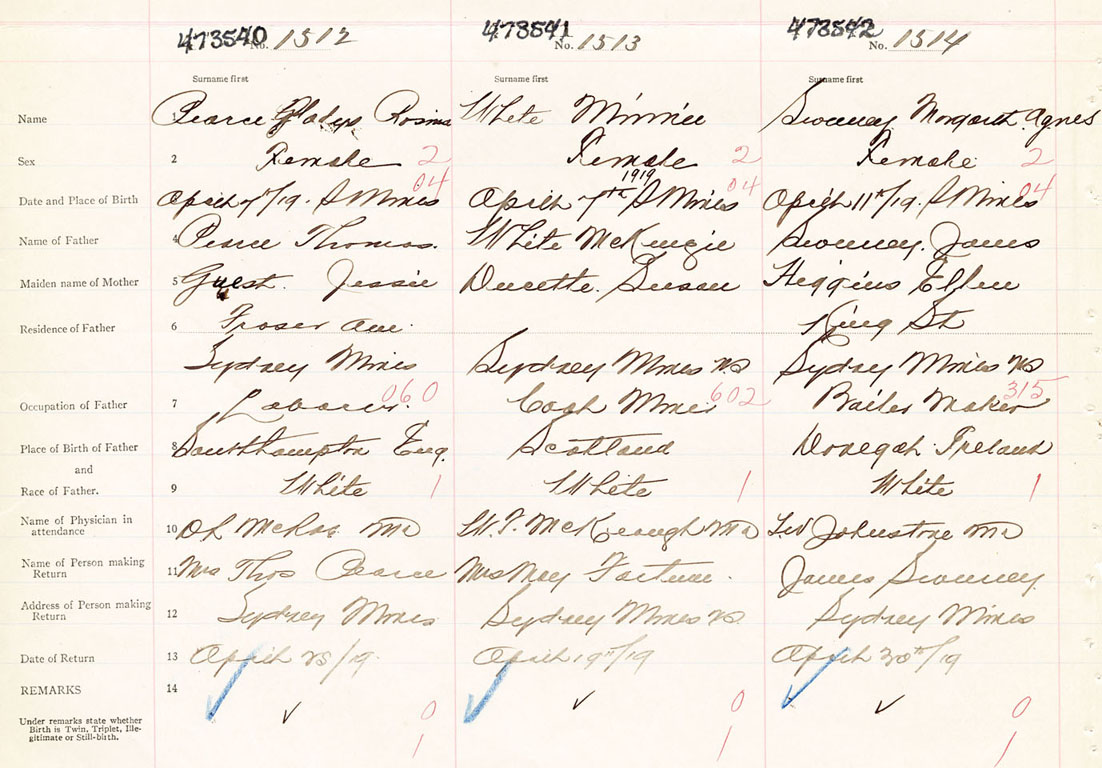 473540 473541 473542
No. 1512 No. 1513 No. 1514
Surname first Surname first Surname first
Name 1 Pearce Gladys Rosina White Minnie Sweeney Margaret Agnes
Sex 2 Female 2 Female 2 Female 2
1919
Date and Place of Birth April 7/19. S Mines 04 April 7th S Mines 04 April 11th/19. S Mines 04
Name of Father 4 Pearce Thomas. White McKenzie Sweeney. James
Maiden name of Mother 5 Guest. Jessie Ducette. Susan Higgins Ellen
Residence of Father 6 Fraser Ave. King St
Sydney Mines Sydney Mines NS Sydney Mines NS
Occupation of Father 7 Laborer. 060 Coal Miner 602 Boiler Maker 315
Place of Birth of Father 8 Southhampton Eng. Scotland Donegal Ireland
and
Race of Father. 9 White 1 White 1 White 1
Name of Physician in
attendance 10 McRae MD McKeough MD Johnstone MD
Name of Person making
Return 11 Mrs Thos Pearce Mrs May Fortune. James Sweeney
Address of Person making
Return 12 Sydney Mines Sydney Mines NS Sydney Mines
Date of Return 13 April 25/19. April 19th/19 April 30th/19
REMARKS 14
Under remarks state whether
Birth is Twin, Triplet, Ille-
gitimate or Still-birth.
0 0 0
1 1 1